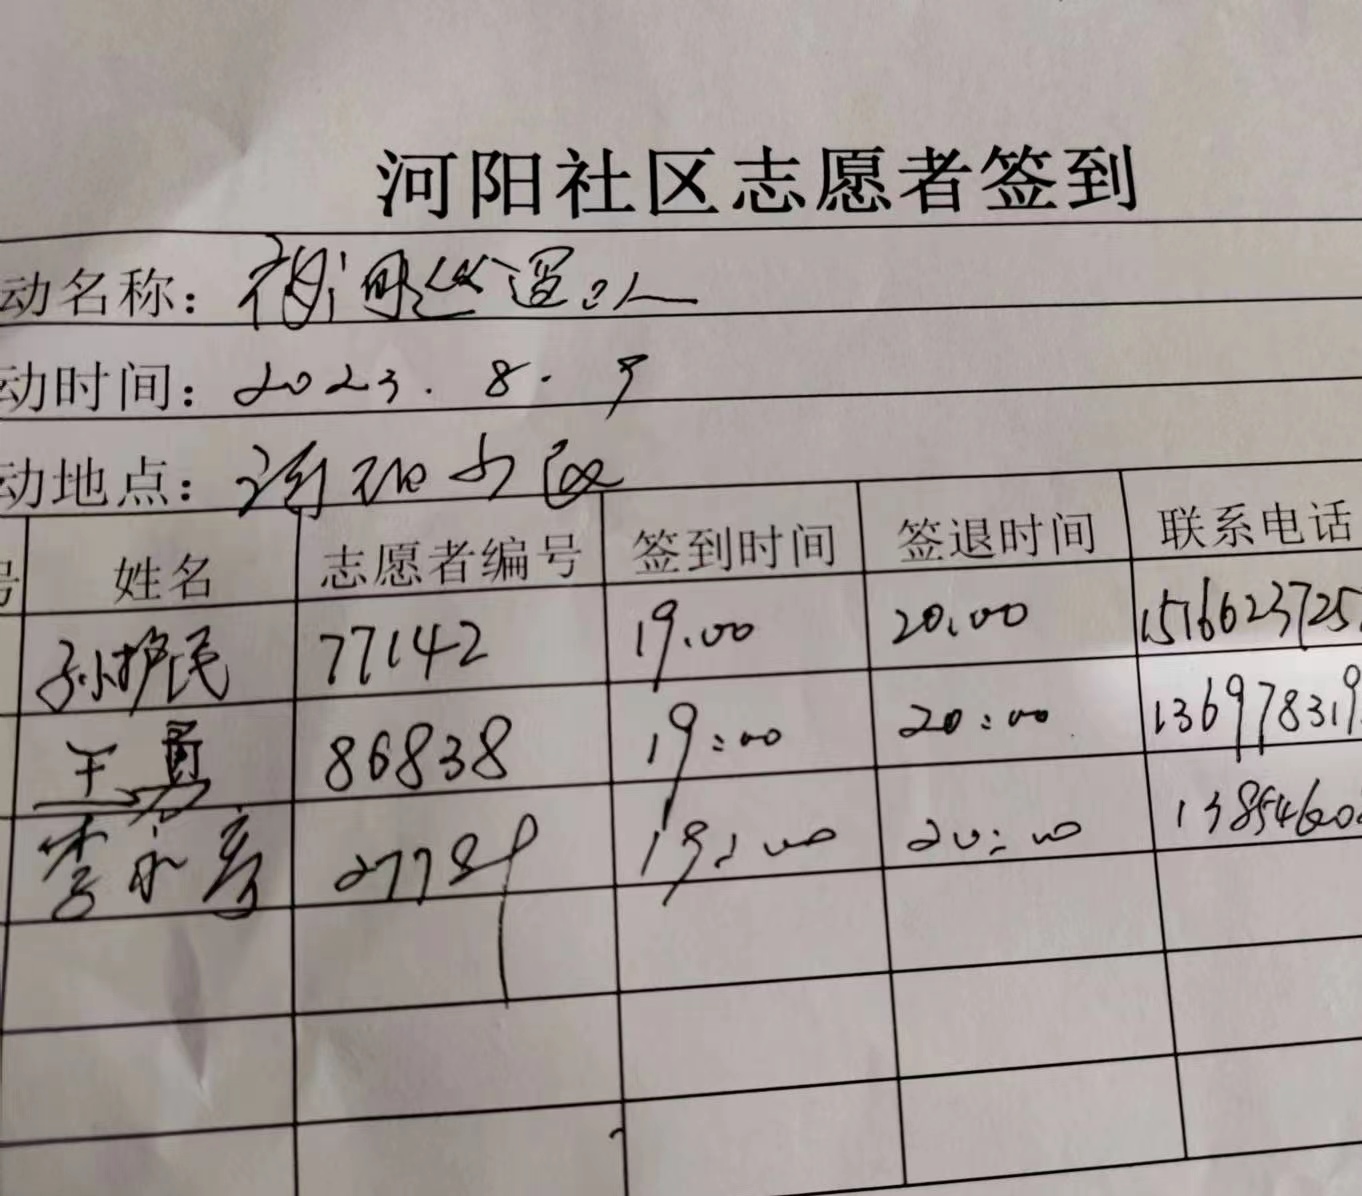 河阳社区志愿者签到
动名称：夜间巡逻队
动时间：2023.8.9
动地点：河阳小区
号 姓名 志愿者编号 签到时间 签退时间 联系电话
孙护民 77142 19.00 20.00 1516623725
王勇 86838 19:00 20:00 136978319
李永亮 27789 19:00 20:00 13854600